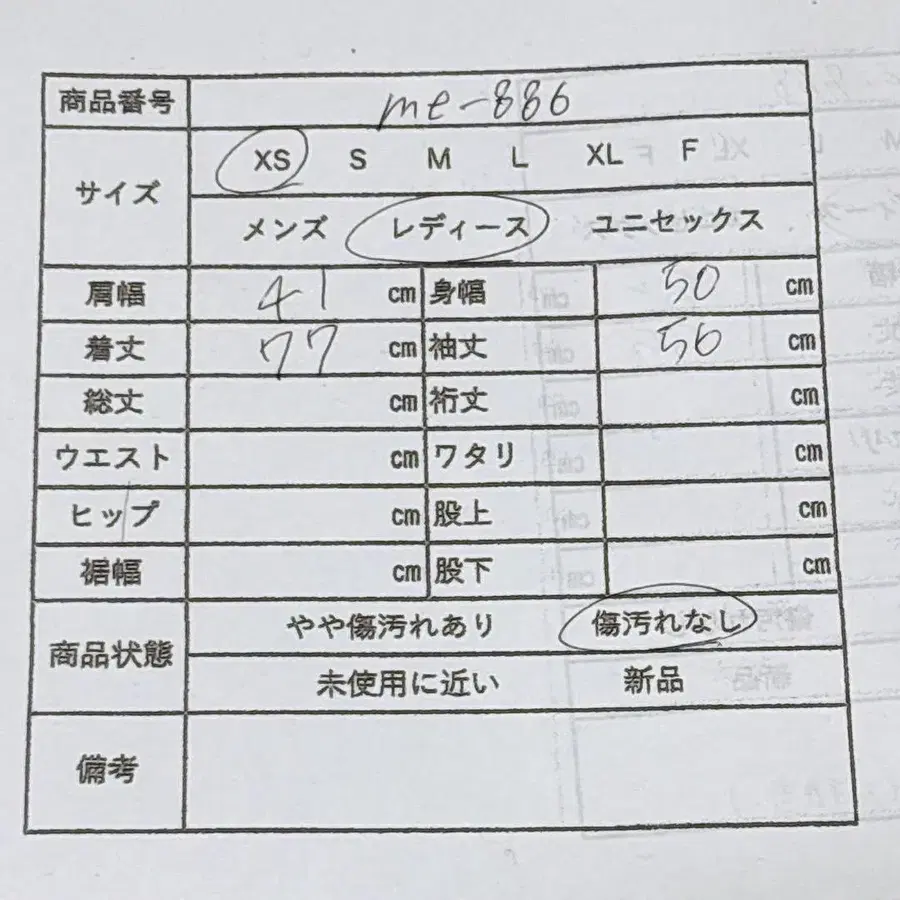 商品番号 me-886
サイズ XS S M L XL F
メンズ レディース ユニセックス
肩幅 41 cm 身幅 50 cm
着丈 77 cm 袖丈 56 cm
総丈 cm 裄丈 cm
ウエスト cm ワタリ cm
ヒップ cm 股上 cm
裾幅 cm 股下 cm
商品状態 やや傷汚れあり 傷汚れなし
未使用に近い 新品
備考